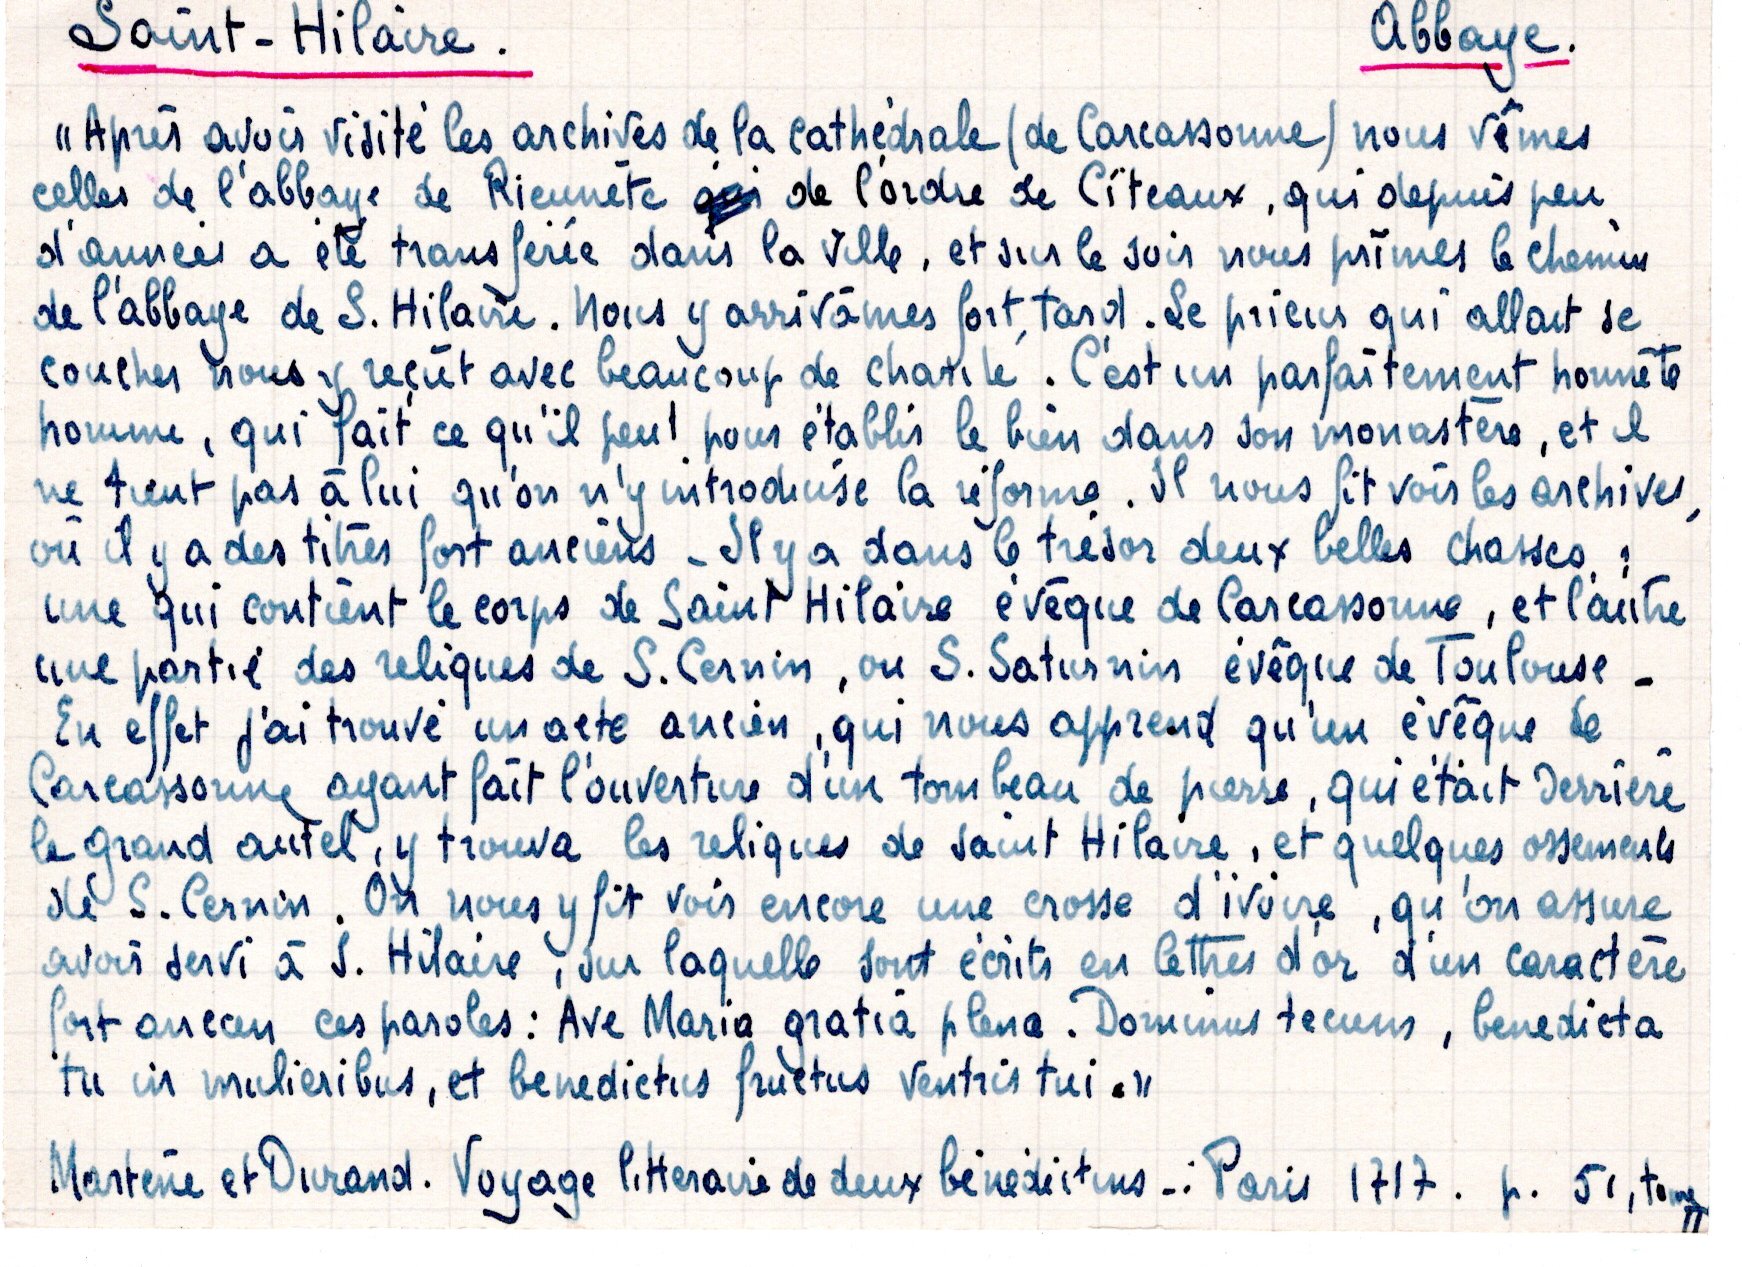 Saint-Hilaire. Abbaye.
"Après avoir visité les archives de la cathédrale (de Carcassonne) nous vîmes
celles de l'abbaye de Rieunète de l'ordre de Cîteaux, qui depuis peu
d'années a été transférée dans la ville, et sur le soir nous prîmes le chemin
de l'abbaye de S. Hilaire. Nous y arrivâmes fort tard. Le prieur qui allait se
coucher nous y reçût avec beaucoup de charité. C'est un parfaitement honnête
homme, qui fait ce qu'il peut pour établir le bien dans son monastère, et il
ne tient pas à lui qu'on n'y introduise la réforme. Il nous fit voir les archives,
où il y a des titres fort anciens - Il y a dans le trésor deux belles chasses :
une qui contient le corps de Saint Hilaire évêque de Carcassonne, et l'autre
une partie des reliques de S. Cernin, ou S. Saturnin évêque de Toulouse -
En effet j'ai trouvé un acte ancien, qui nous apprend qu'un évêque de
Carcassonne ayant fait l'ouverture d'un tombeau de pierre, qui était derrière
le grand autel, y trouva les reliques de saint Hilaire, et quelques ossements
de S. Cernin. On nous y fit voir encore une crosse d'ivoire, qu'on assure
avoir servi à S. Hilaire, sur laquelle sont écrits en lettres d'or d'un caractère
fort ancien ces paroles : Ave Maria gratia plena. Dominus tecum, benedicta
tu in mulieribus, et benedictus fructus ventris tui."
Martène et Durand. Voyage litteraire de deux bénédictins -: Paris 1717. p. 51, tome II